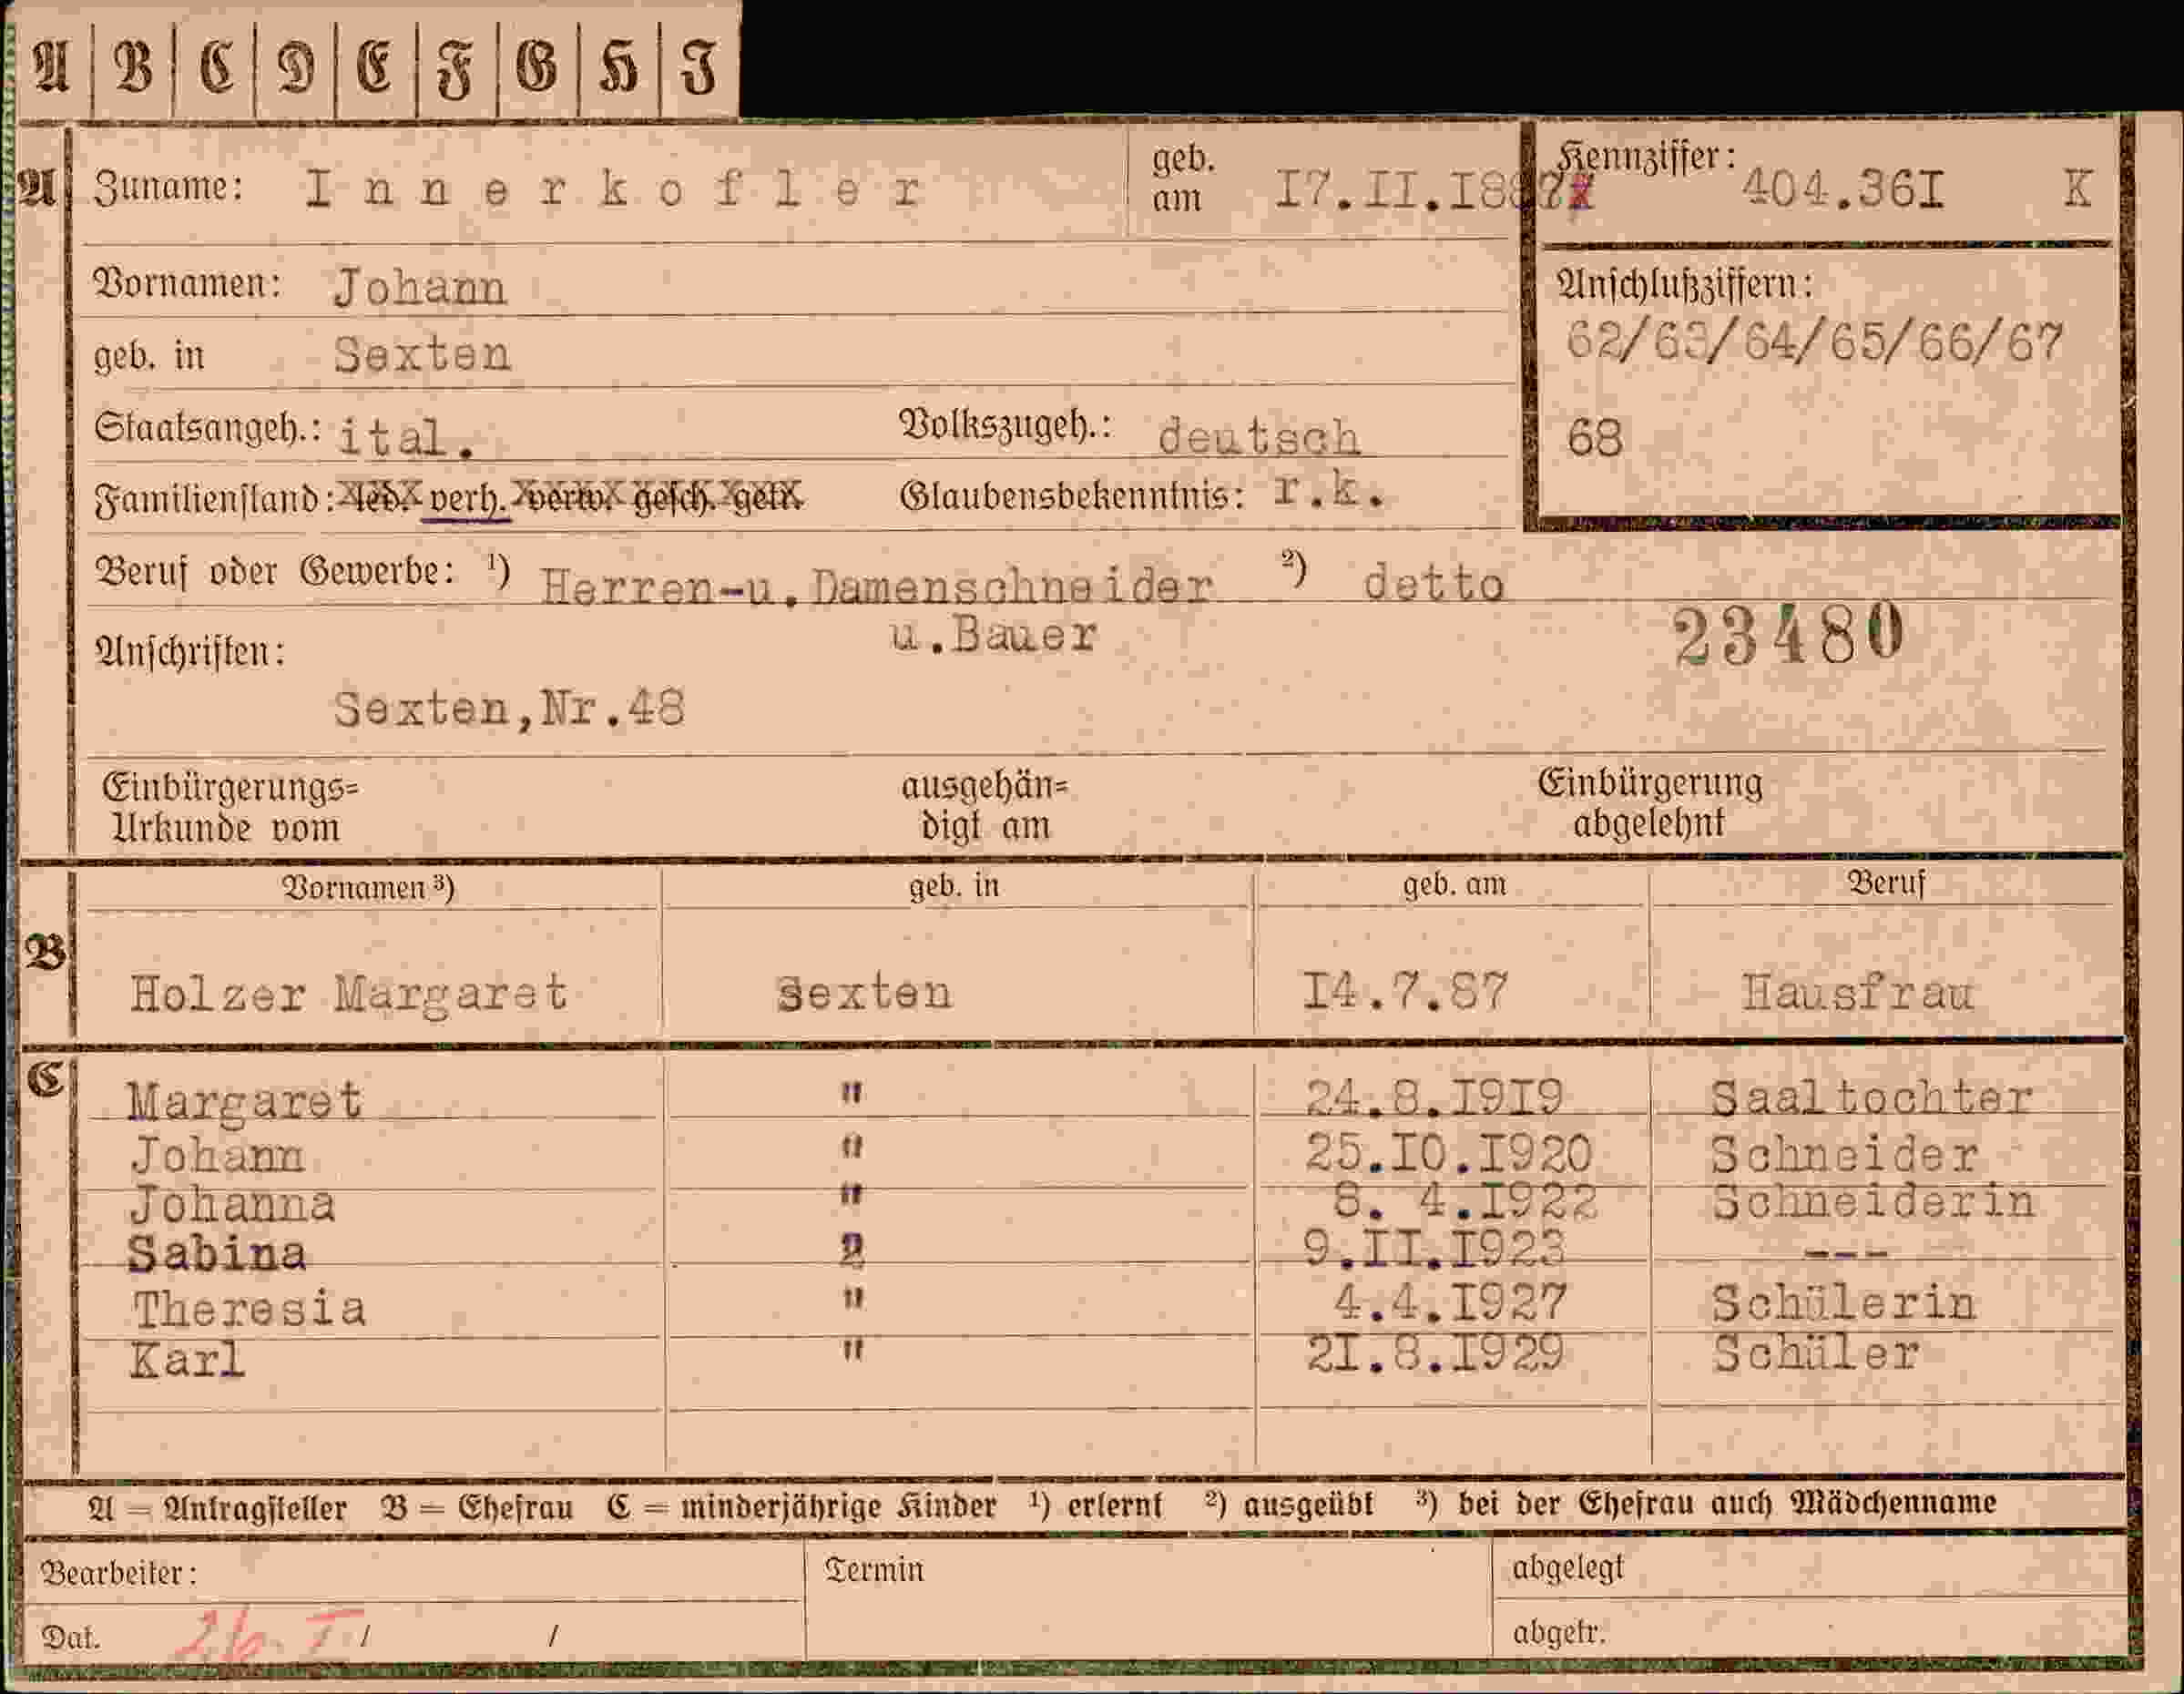 A B C D E F G H I
A Zuname: Innerkofler geb. am 17.II.188 Kennziffer: 404.36I K
Vornamen: Johann Anschlußziffern:
geb. in Sexten 62/63/64/65/66/67
Staatsangeh.: ital. Volkszugeh.: deutsch 68
Familienstand: led. verh. verw. gesch. getr. Glaubensbekenntnis: r.k.
Beruf oder Gewerbe: 1) Herren-u.Damenschneider 2) detto
u.Bauer 23480
Anschriften:
Sexten,Nr.48
Einbürgerungs= ausgehän= Einbürgerung
Urkunde vom digt am abgelehnt
Vornamen 3) geb. in geb. am Beruf
B
Holzer Margaret Sexten I4.7.87 Hausfrau
C
Margaret " 24.8.I9I9 Saaltochter
Johann " 25.I0.I920 Schneider
Johanna " 8. 4.I922 Schneiderin
Sabina " 9.II.I923 ---
Theresia " 4.4.I927 Schülerin
Karl " 2I.8.I929 Schüler
A = Antragsteller B = Ehefrau C = minderjährige Kinder 1) erlernt 2) ausgeübt 3) bei der Ehefrau auch Mädchenname
Bearbeiter: Termin abgelegt
Dat. / / abgetr.